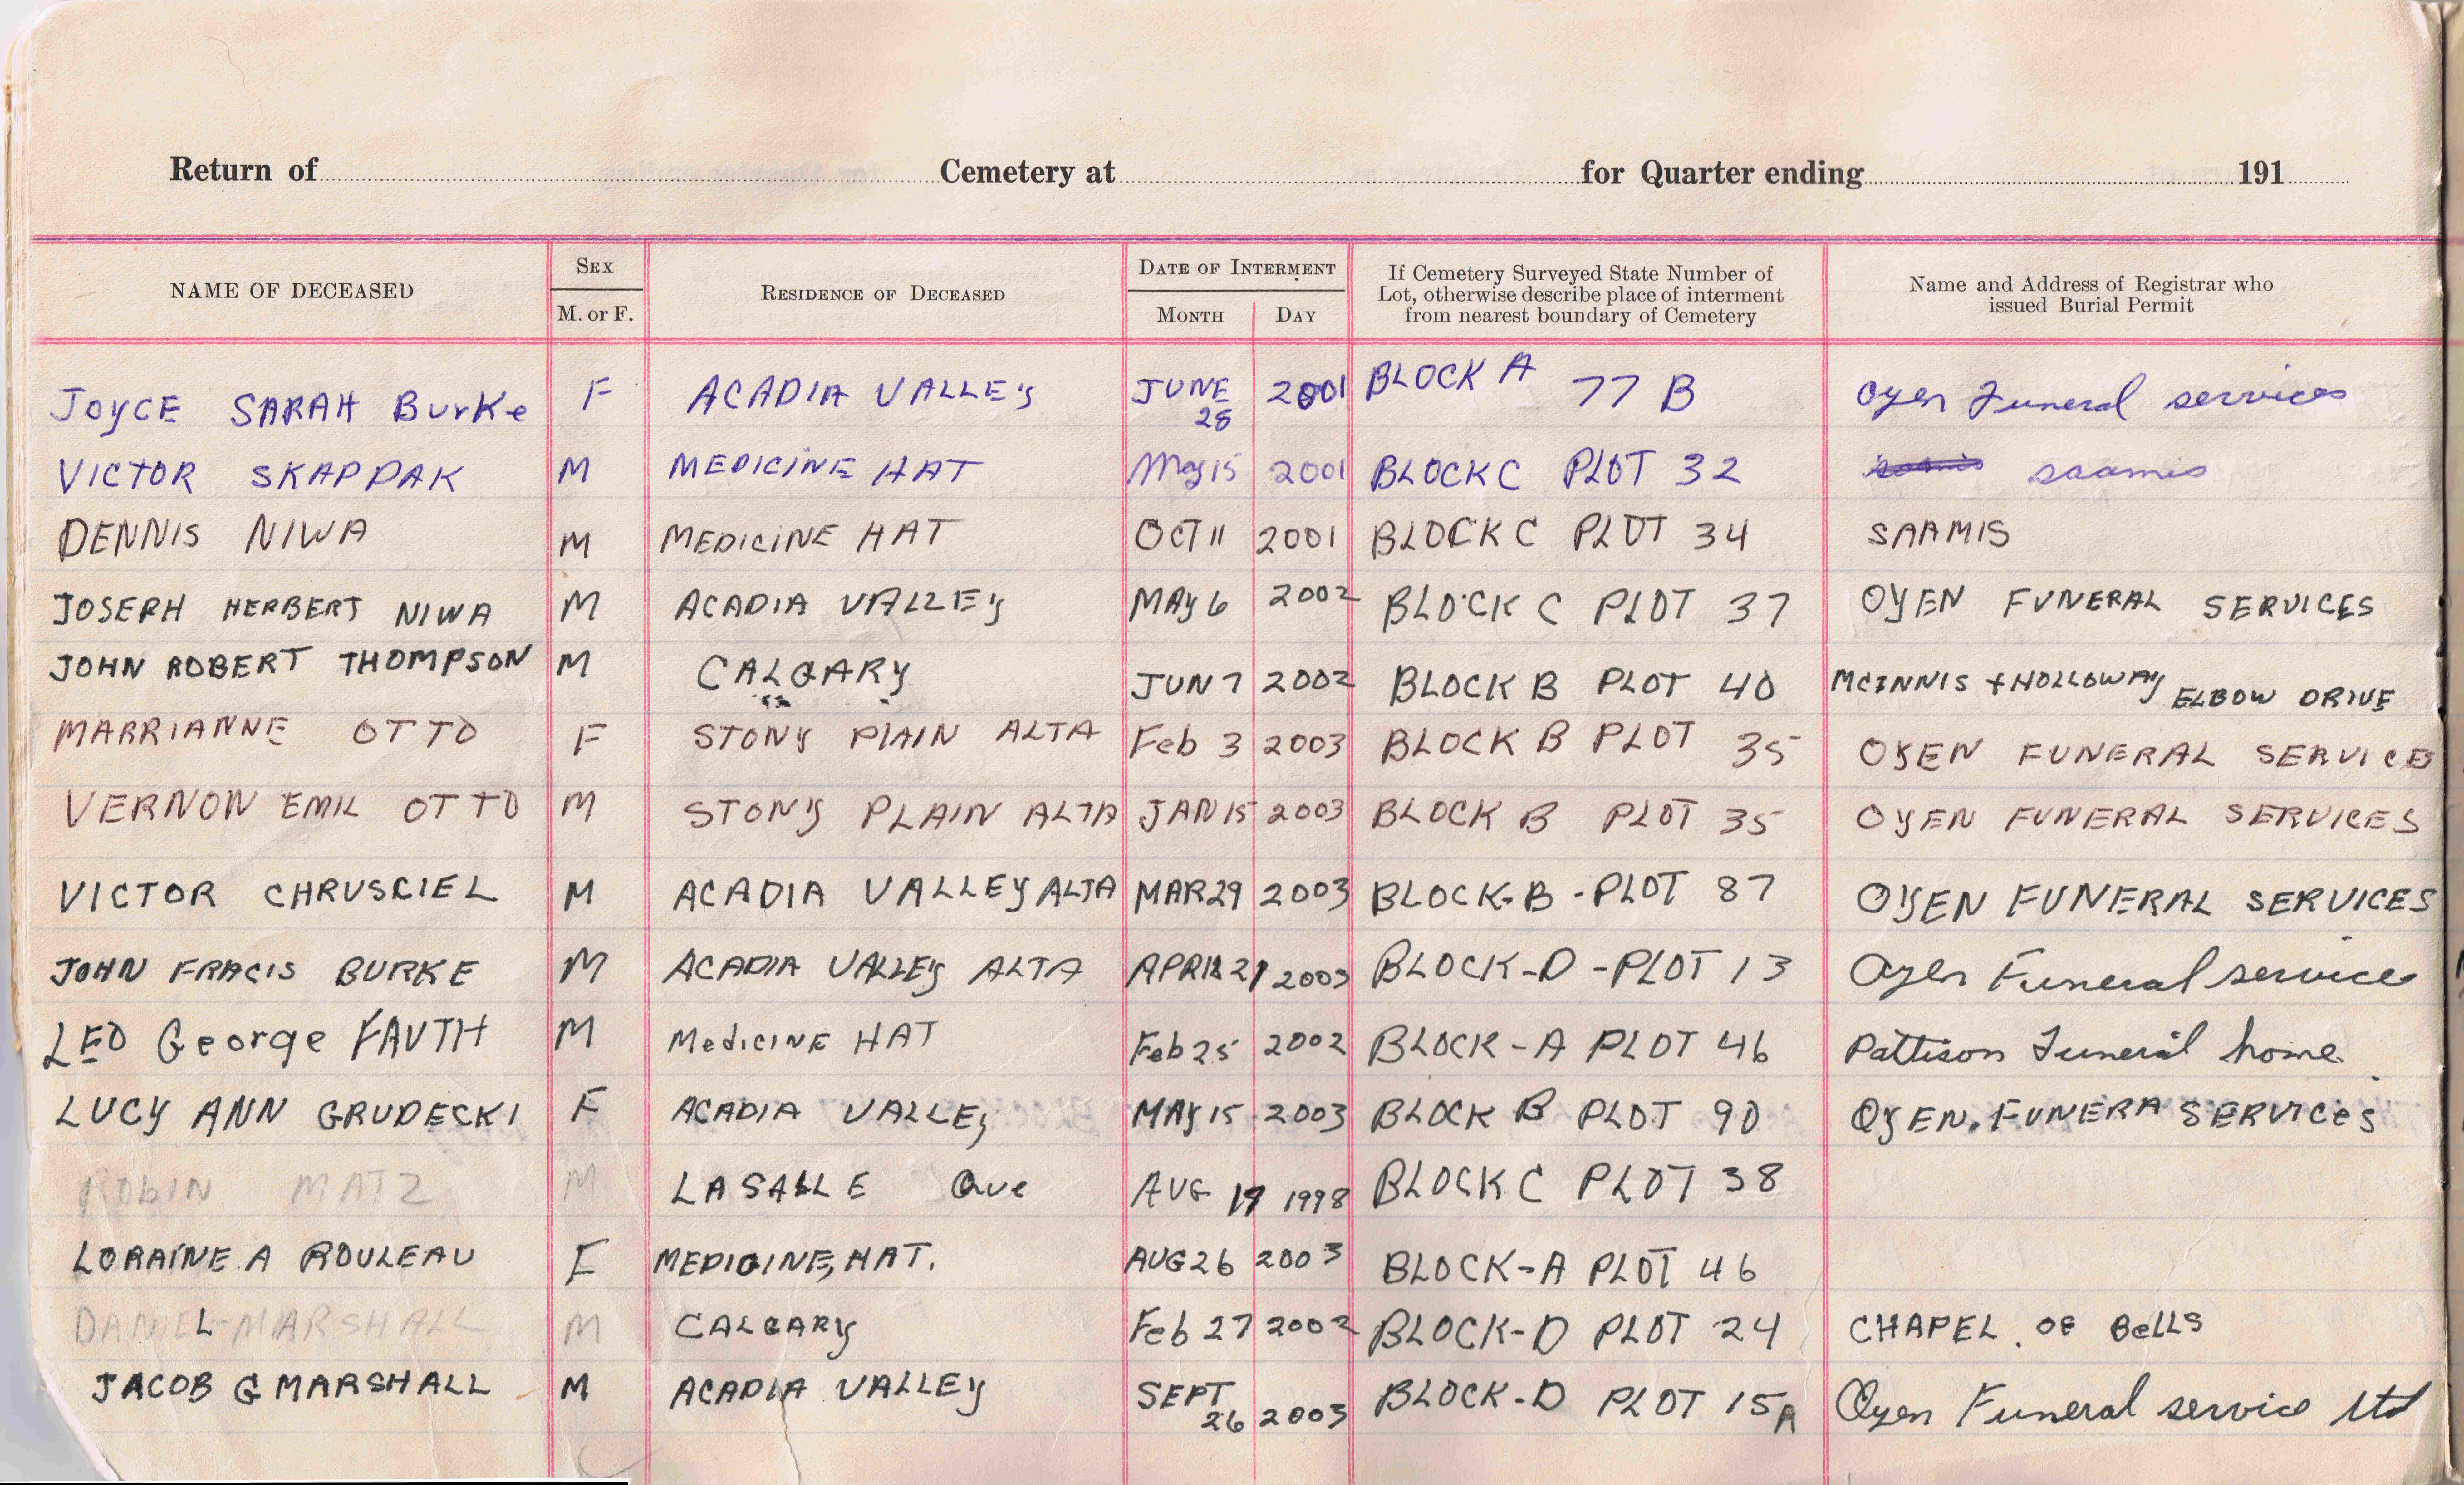 Return of Cemetery at for Quarter ending 191
NAME OF DECEASED SEX M. or F. RESIDENCE OF DECEASED DATE OF INTERMENT MONTH DAY If Cemetery Surveyed State Number of Lot, otherwise describe place of interment from nearest boundary of Cemetery Name and Address of Registrar who issued Burial Permit
JOYCE SARAH BurKe F ACADIA VALLEY JUNE 28 2001 BLOCK A 77 B Oyen Funeral services
VICTOR SKAPPAK M MEDICINE HAT May 15 2001 BLOCK C PLOT 32 saamis
DENNIS NIWA M MEDICINE HAT OCT 11 2001 BLOCK C PLOT 34 SAAMIS
JOSEPH HERBERT NIWA M ACADIA VALLEY MAY 6 2002 BLOCK C PLOT 37 OYEN FUNERAL SERVICES
JOHN ROBERT THOMPSON M CALGARY JUN 7 2002 BLOCK B PLOT 40 MCINNIS + HOLLOWAY ELBOW DRIVE
MARRIANNE OTTO F STONY PlAIN ALTA Feb 3 2003 BLOCK B PLOT 35 OYEN FUNERAL SERVICES
VERNON EMIL OTTO M STONY PLAIN ALTA JAN 15 2003 BLOCK B PLOT 35 OYEN FUNERAL SERVICES
VICTOR CHRUSCIEL M ACADIA VALLEY ALTA MAR 29 2003 BLOCK-B - PLOT 87 OYEN FUNERAL SERVICES
JOHN FRACIS BURKE M ACADIA VALLEY ALTA APRIL 21 2003 BLOCK-D - PLOT 13 Oyen Funeral service
LEO George FAUTH M MedicINE HAT Feb 25 2002 BLOCK-A PLOT 46 Pattison Funeral home
LUCY ANN GRUDECKI F ACADIA VALLEY MAY 15 2003 BLOCK B PLOT 90 OYEN. FUNERA SERVICES
RObIN MATZ M LASALLE Ave AUG 19 1998 BLOCK C PLOT 38
LORAINE A ROULEAU F MEDICINE HAT. AUG 26 2003 BLOCK-A PLOT 46
DANIEL MARSHALL M CALGARY Feb 27 2002 BLOCK-D PLOT 24 CHAPEL OF BeLLS
JACOB G MARSHALL M ACADIA VALLEY SEPT 26 2003 BLOCK-D PLOT 15A Oyen Funeral service ltd